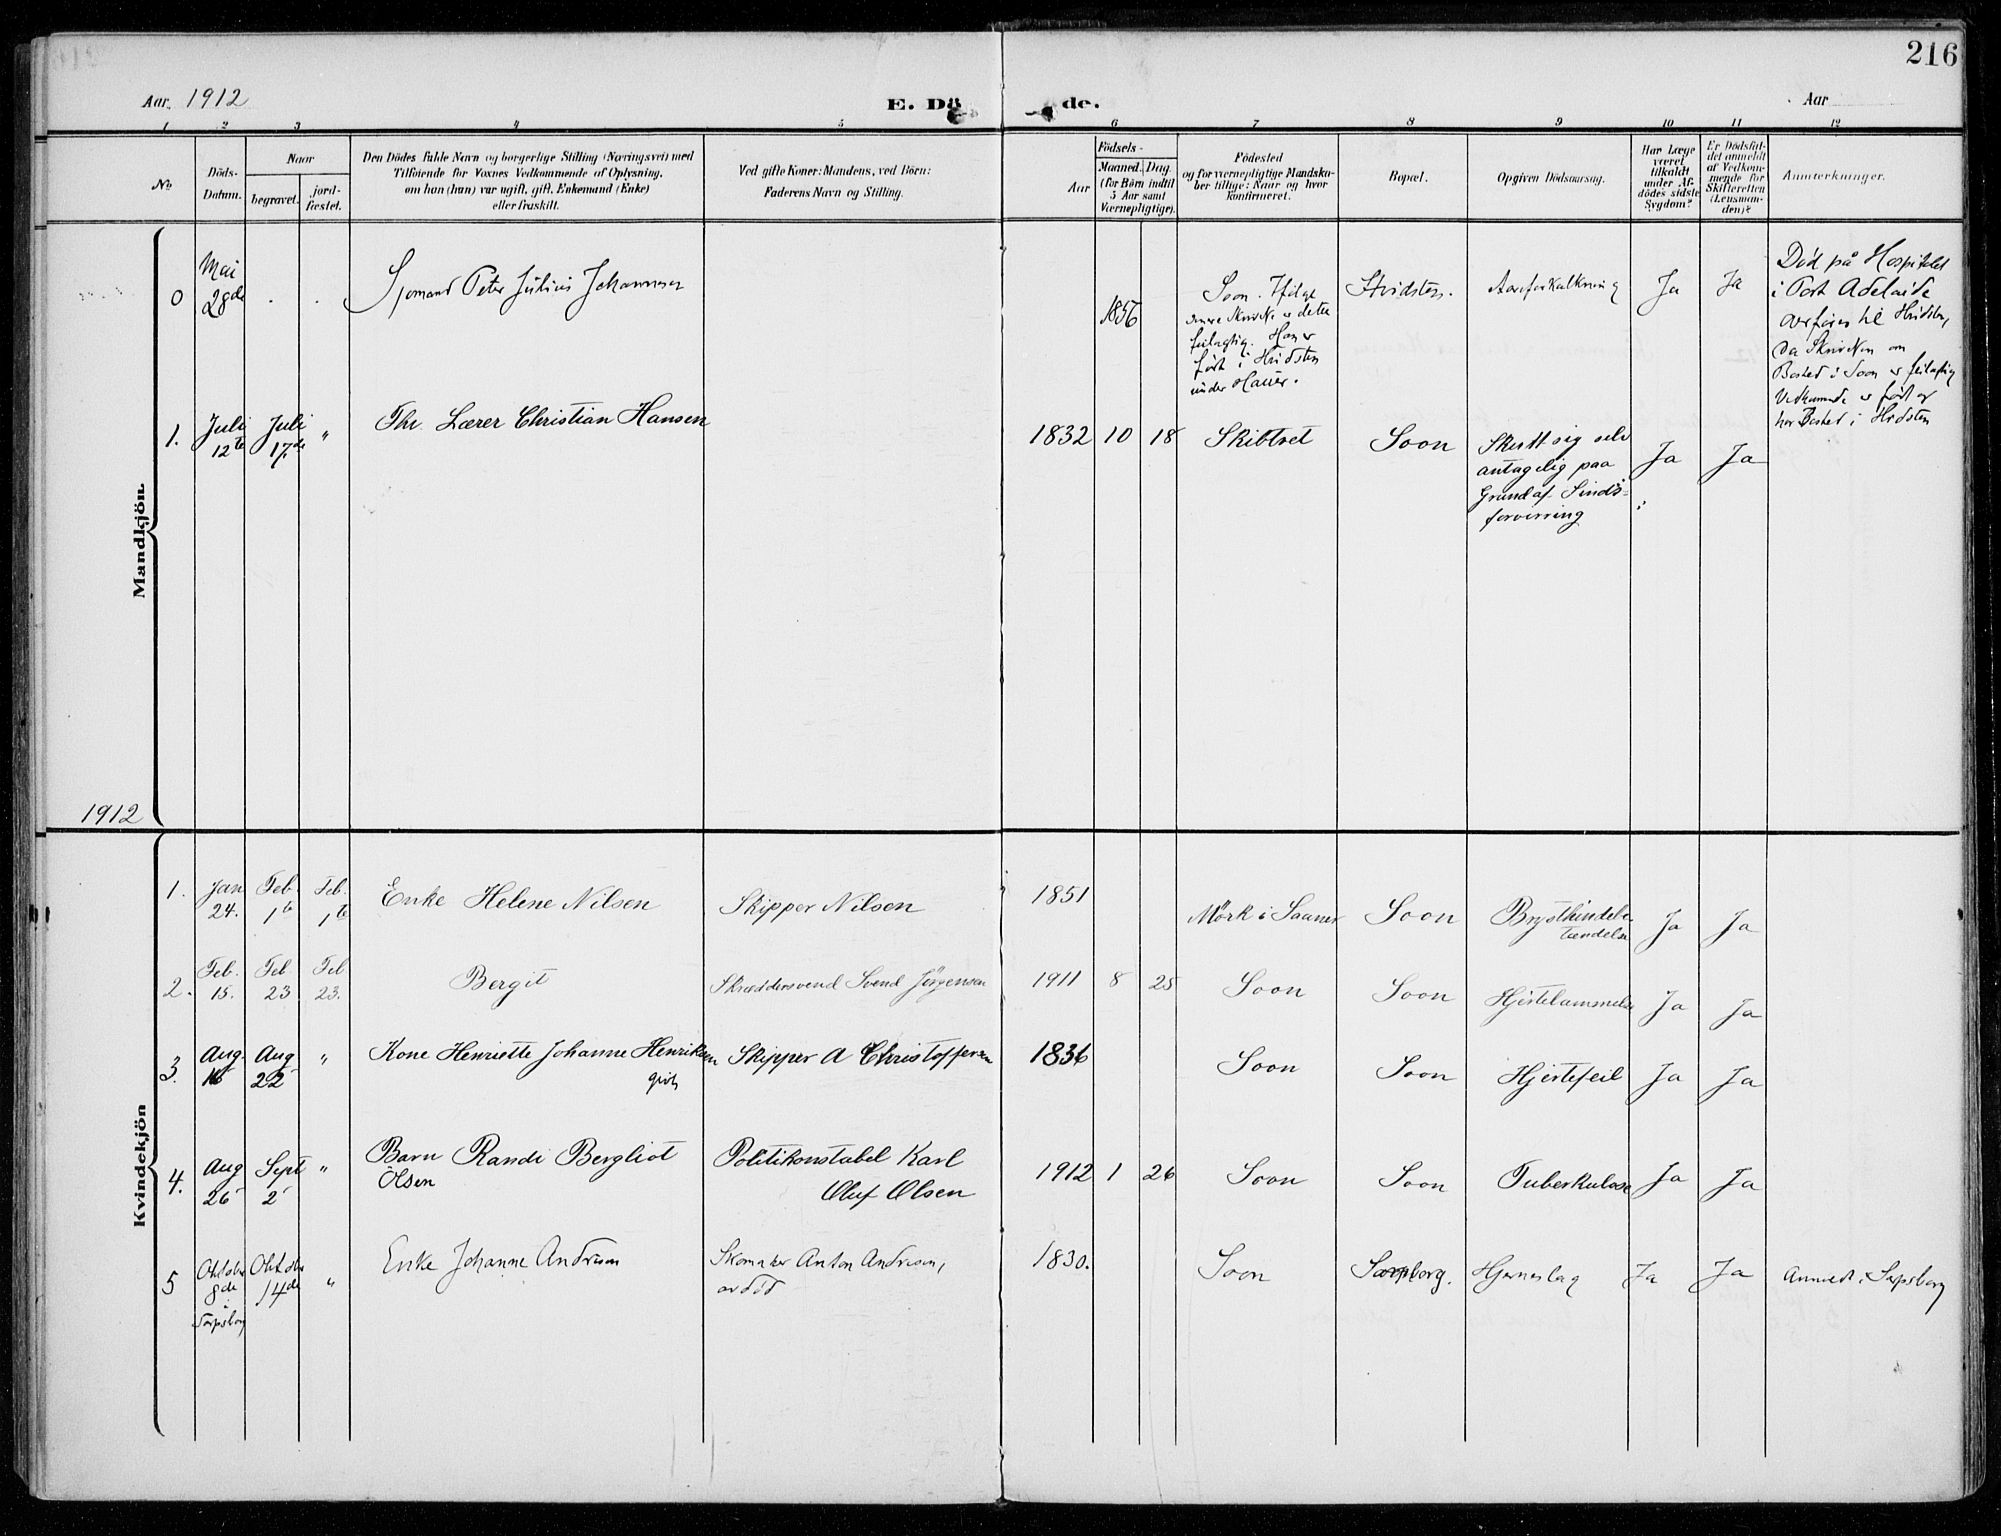 216
Aar. 1912
E. Dö de.
Aar
1 2 3 4 5 6 7 8 9 10 11 12
No
Döds-
Datum.
Naar
begravet.
jord-
fæstet.
Den Dödes fulde Navn og borgerlige Stilling (Næringsvei) med
Tilføiende for Voxnes Vedkommende af Oplysning,
om han (hun) var ugift, gift, Enkemand (Enke)
eller fraskilt.
Ved gifte Koner: Mandens, ved Börn:
Faderens Navn og Stilling.
Aar
Födsels-
Maaned. Dag.
(for Börn indtil
5 Aar samt
Værnepligtige).
Födested
og for værnepligtige Mandska-
ber tillige: Naar og hvor
konfirmeret.
Bopæl.
Opgiven Dödsaarsag.
Har Læge
været
tilkaldt
under Af-
dödes sidste
Sygdom?
Er Dödsfal-
det anmeldt
af Vedkom-
mende for
Skifteretten
(Lensman-
den)?
Anmærkninger.
Mandkjön.
0
Mai
28de
Sjømand Peter Julius Johannesen
1856
Soon. Ifølge
senere Skrivelse er dette
feilagtig. Han er
født i Hvidsten
under Hauer.
Hvidsten.
Aareforkalkning
Ja
Ja
Død på Hospitalet
i Port Adelaide
overføres til Hvidsten,
da Skrivelsen om
Bosted i Soon er feilagtig
Vedkommende er født og
har Bosted i Hvidsten
1.
Juli
12te
Juli
17de
"
Fhv. Lærer Christian Hansen
1832 10 18
Skibtvet
Soon
Skutt sig selv
antagelig paa
Grund af Sinds-
forvirring
Ja
Ja
1912
Kvindekjön
1.
Jan
24.
Feb.
1te
Feb.
1te
Enke Helene Nilsen
Skipper Nilsen
1851
Mörk i Saaner
Soon
Brysthindebe-
tændelse
Ja
Ja
2.
Feb.
15.
Feb
23
Feb
23.
Bergit
Skræddersvend Svend Jörgensen
1911 8 25
Soon
Soon
Hjertelammelse
Ja
Ja
3.
Aug.
16
Aug
22
"
Kone Henriette Johanne Henriksen
gift
Skipper A Christoffersen
1836
Soon
Soon
Hjertefeil
Ja
Ja
4.
Aug
26
Sept
2
"
Barn Randi Bergliot
Olsen
Politikonstabel Karl
Oluf Olsen
1912 1 26
Soon
Soon
Tuberkulose
Ja
Ja
5
Oktober
8de
i
Sarpsborg
Oktober
14de
"
Enke Johanne Andresen
Skomaker Anton Andresen,
avdöd
1830.
Soon
Sarpsborg.
Hjerneslag
Ja
Ja
Anmeldt i Sarpsborg